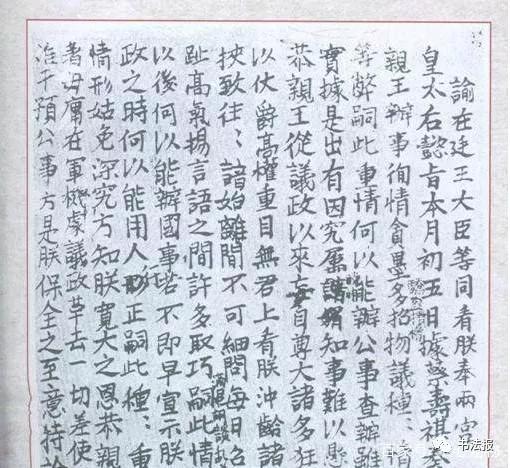 諭在廷王大臣等同看朕奉兩宮
皇太后懿旨本月初五日據蔡壽祺
親王辦事徇情貪墨多招物議種〻
等弊嗣此重情何以能辦公事查辦雖
實據是出有因究屬曖昧知事難以懸
恭親王從議政以來妄自尊大諸多狂
以仗爵高權重目無君上看朕沖齡諸
挾致往〻諳始離間不可細問每日召
趾高氣揚言語之間許多取巧嗣此情
以後何以能辦國事若不即早宣示朕
政之時何以能用人行正嗣此種〻重
情形姑免深究方知朕寬大之恩恭親
著毋庸在軍機處議政革去一切差使
准干預公事方是朕保全之至意特
书法报